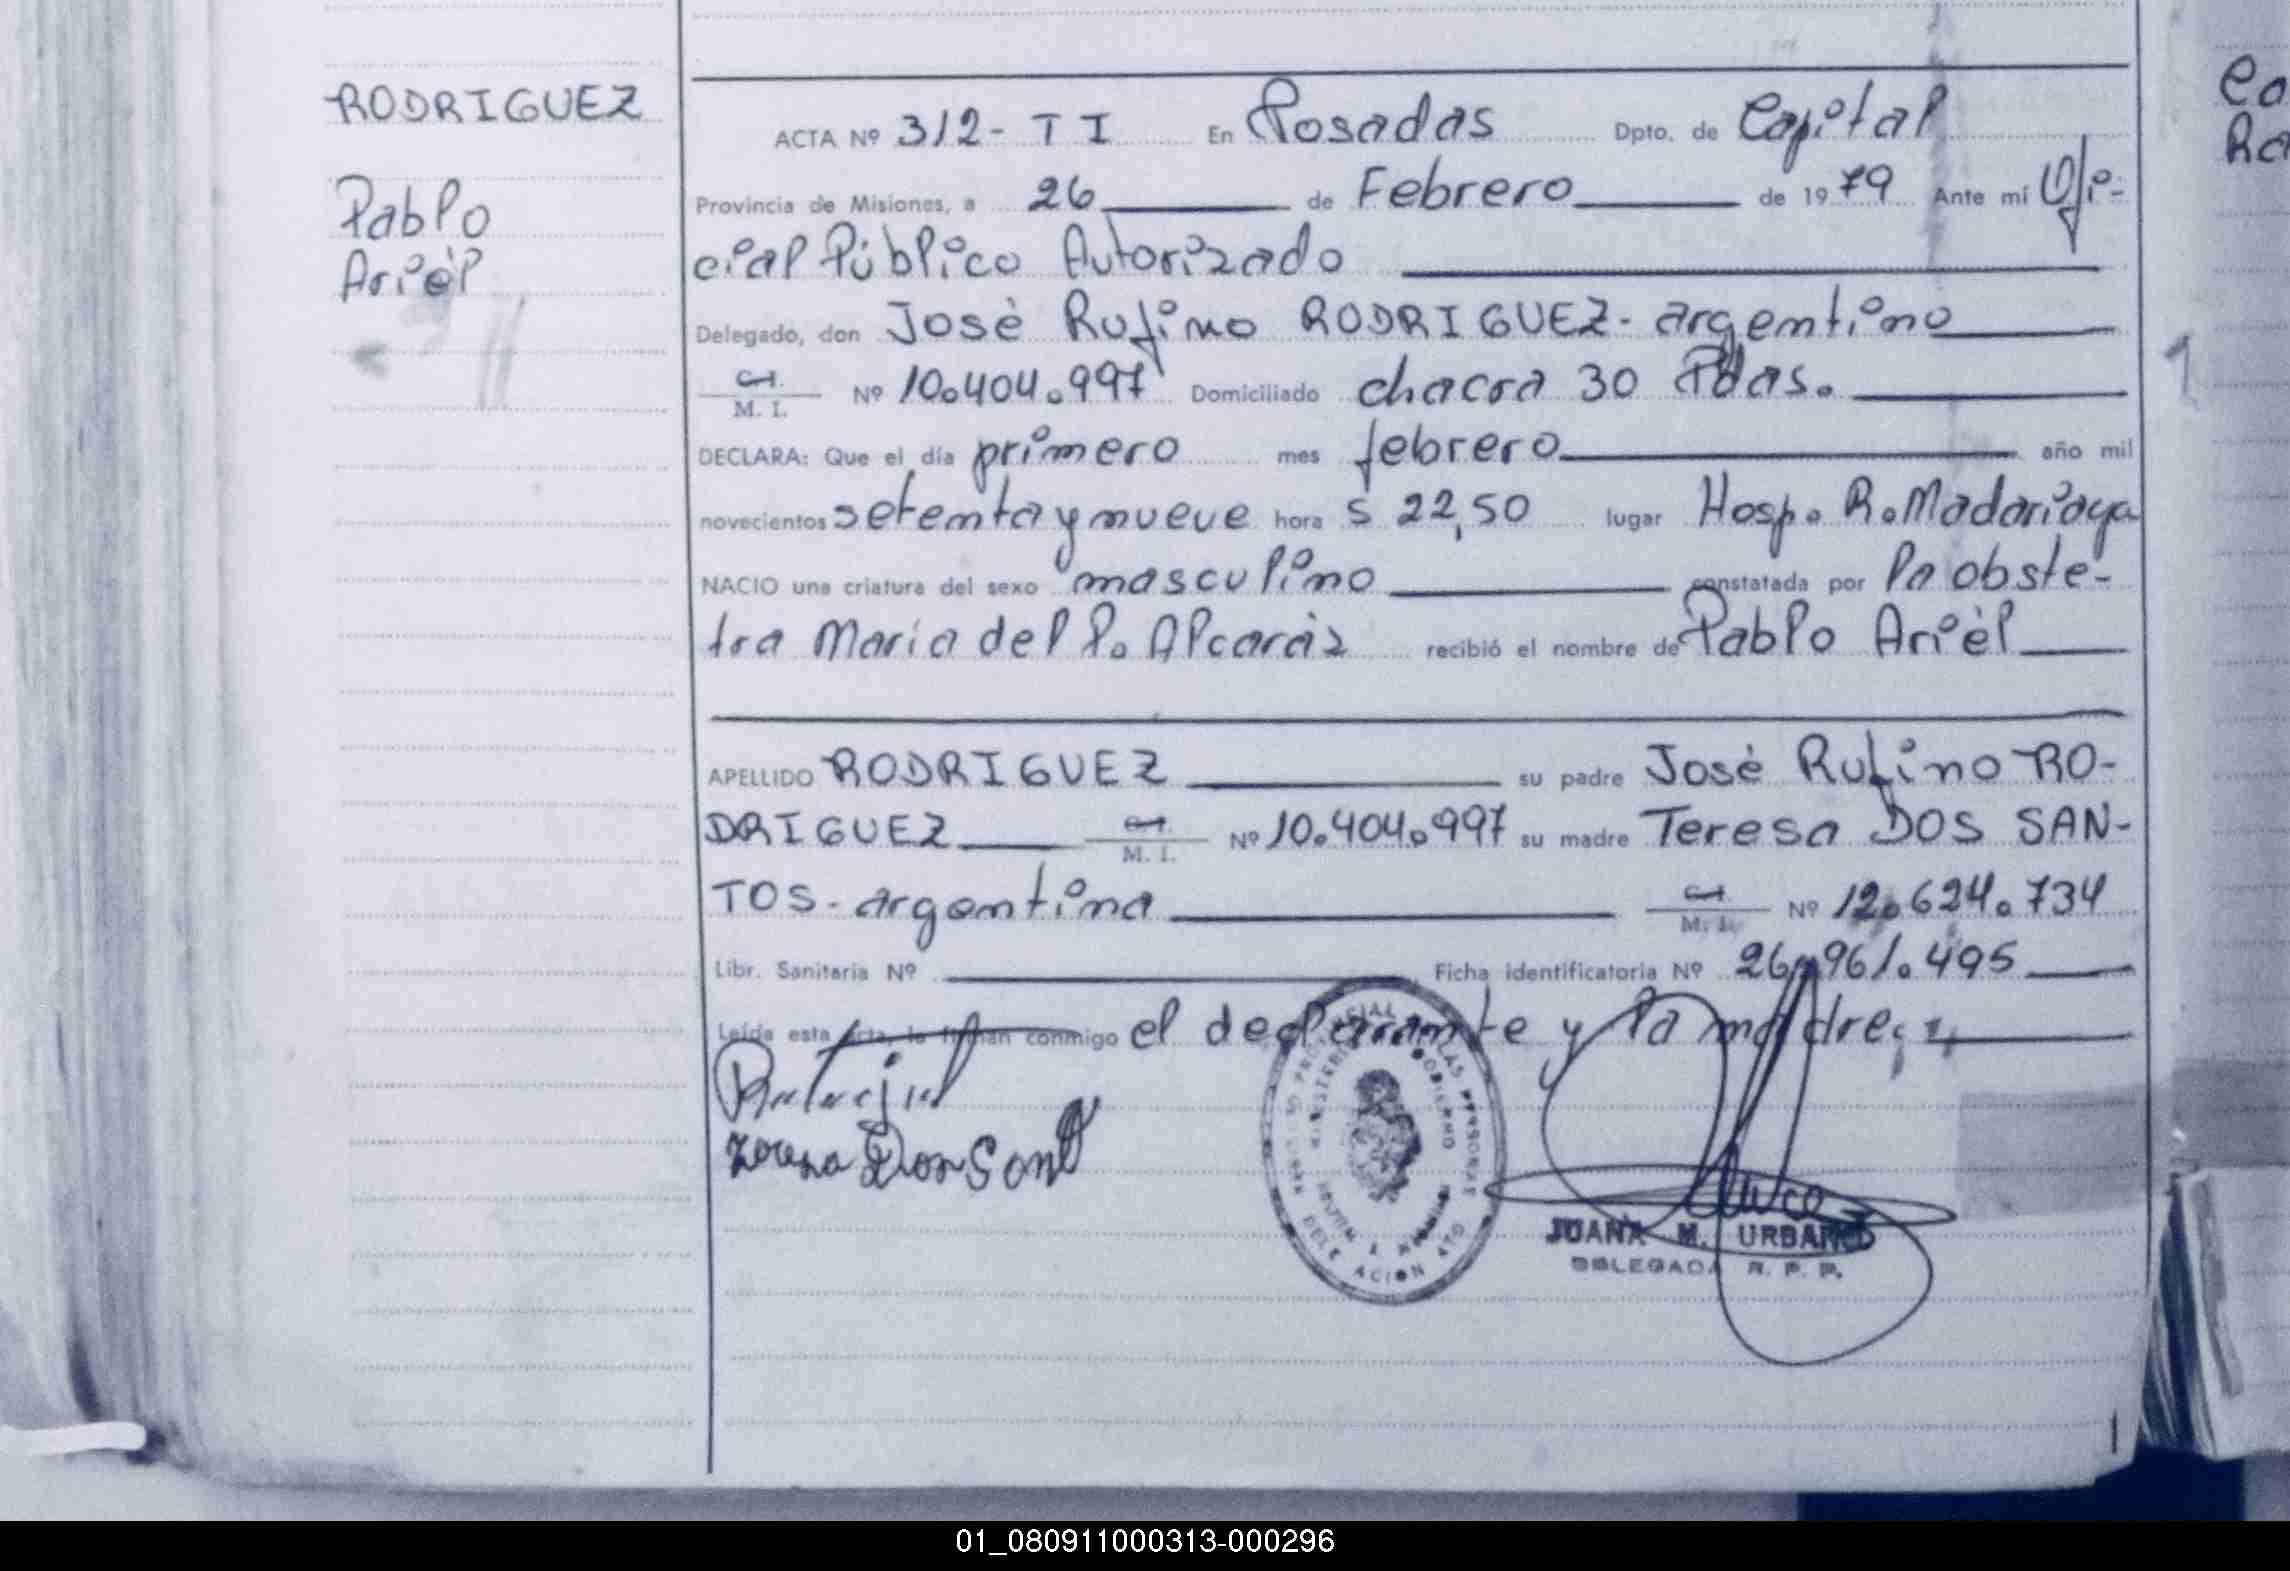 RODRIGUEZ
Pablo
Arièl
ACTA Nº 312- T I En Posadas Dpto. de Capital
Provincia de Misiones, a 26 de Febrero de 1979 Ante mí Ofi-
cial Público Autorizado
Delegado, don Josè Rufino RODRIGUEZ- argentino
C.I.
M. I. Nº 10.404.997 Domiciliado chacra 30 Pdas.
DECLARA: Que el día primero mes febrero año mil
novecientos setenta y nueve hora s 22,50 lugar Hosp. R. Madariaga
NACIO una criatura del sexo masculino constatada por la obste-
tra Maria del P. Alcaràz recibió el nombre de Pablo Arièl
APELLIDO RODRIGUEZ su padre Josè Rufino RO-
DRIGUEZ C.I.
M. I. Nº 10.404.997 su madre Teresa DOS SAN-
TOS- argentina C.I.
M. I. Nº 12.624.734
Libr. Sanitaria Nº Ficha identificatoria Nº 26.961.495
Leída esta acta, la firman conmigo el declarante y la madre,
Teresa Dos Sant
JUANA M. URBANO
DELEGADA R. P. P.
Ca
Ro
01_080911000313-000296